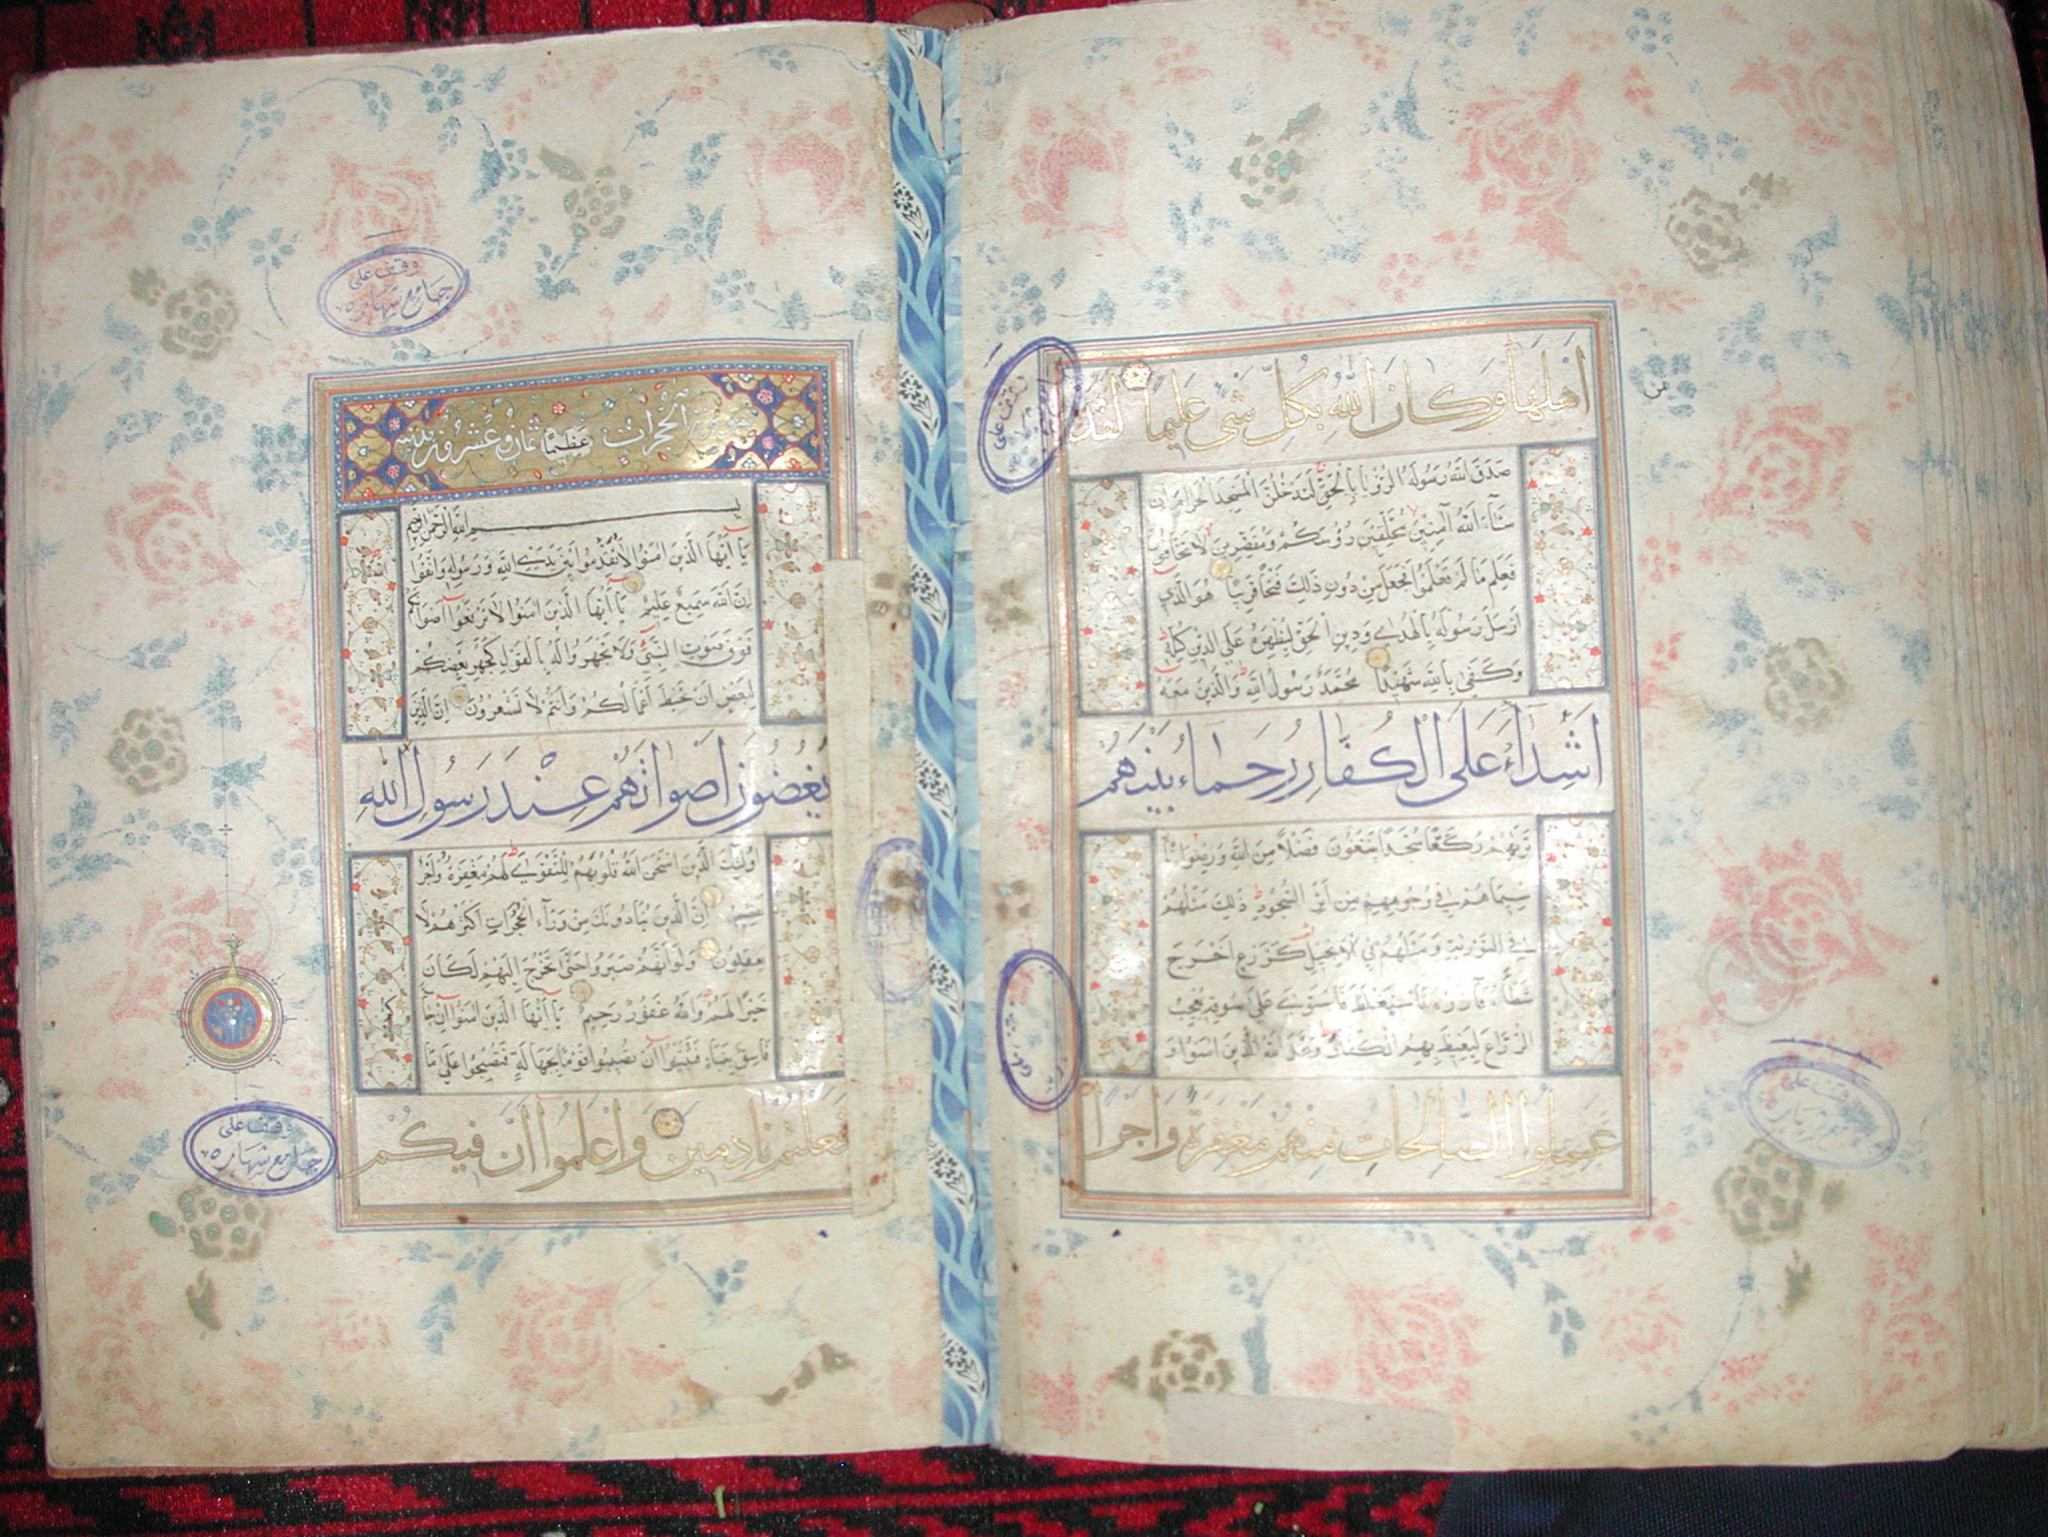 اَهْلَهَا وَكَانَ اللّٰهُ بِكُلِّ شَىْءٍ عَلِيمًا لَقَدْ
صَدَقَ اللّٰهُ رَسُولَهُ الرُّؤْيَا بِالْحَقِّ لَتَدْخُلُنَّ الْمَسْجِدَ الْحَرَامَ اِنْ
شَآءَ اللّٰهُ اٰمِنِينَ مُحَلِّقِينَ رُؤُسَكُمْ وَمُقَصِّرِينَ لَا تَخَافُونَ
فَعَلِمَ مَا لَمْ تَعْلَمُوا فَجَعَلَ مِنْ دُونِ ذٰلِكَ فَتْحًا قَرِيبًا هُوَ الَّذِى
اَرْسَلَ رَسُولَهُ بِالْهُدٰى وَدِينِ الْحَقِّ لِيُظْهِرَهُ عَلَى الدِّينِ كُلِّهِ
وَكَفٰى بِاللّٰهِ شَهِيدًا مُحَمَّدٌ رَسُولُ اللّٰهِ وَالَّذِينَ مَعَهُ
اَشِدَّاءُ عَلَى الْكُفَّارِ رُحَمَاءُ بَيْنَهُمْ
تَرٰيهُمْ رُكَّعًا سُجَّدًا يَبْتَغُونَ فَضْلًا مِنَ اللّٰهِ وَرِضْوَانًا
سِيمَاهُمْ فِى وُجُوهِهِمْ مِنْ اَثَرِ السُّجُودِ ذٰلِكَ مَثَلُهُمْ
فِى التَّوْرٰيةِ وَمَثَلُهُمْ فِى الْاِنْجِيلِ كَزَرْعٍ اَخْرَجَ
شَطْأَهُ فَاٰزَرَهُ فَاسْتَغْلَظَ فَاسْتَوٰى عَلٰى سُوقِهِ يُعْجِبُ
الزُّرَّاعَ لِيَغِيظَ بِهِمُ الْكُفَّارَ وَعَدَ اللّٰهُ الَّذِينَ اٰمَنُوا وَ
عَمِلُوا الصَّالِحَاتِ مِنْهُمْ مَغْفِرَةً وَاَجْرًا
سورة الحجرات عَظِيمًا ثمان وعشرون مدنية
بِسْمِ اللّٰهِ الرَّحْمٰنِ الرَّحِيمِ
يَآ اَيُّهَا الَّذِينَ اٰمَنُوا لَا تُقَدِّمُوا بَيْنَ يَدَىِ اللّٰهِ وَرَسُولِهِ وَاتَّقُوا
اِنَّ اللّٰهَ سَمِيعٌ عَلِيمٌ يَآ اَيُّهَا الَّذِينَ اٰمَنُوا لَا تَرْفَعُوا اَصْوَاتَكُمْ
فَوْقَ صَوْتِ النَّبِىِّ وَلَا تَجْهَرُوا لَهُ بِالْقَوْلِ كَجَهْرِ بَعْضِكُمْ
لِبَعْضٍ اَنْ تَحْبَطَ اَعْمَالُكُمْ وَاَنْتُمْ لَا تَشْعُرُونَ اِنَّ الَّذِينَ
يَغُضُّونَ اَصْوَاتَهُمْ عِنْدَ رَسُولِ اللّٰهِ
اُولٰئِكَ الَّذِينَ امْتَحَنَ اللّٰهُ قُلُوبَهُمْ لِلتَّقْوٰى لَهُمْ مَغْفِرَةٌ وَاَجْرٌ
عَظِيمٌ اِنَّ الَّذِينَ يُنَادُونَكَ مِنْ وَرَآءِ الْحُجُرَاتِ اَكْثَرُهُمْ لَا
يَعْقِلُونَ وَلَوْ اَنَّهُمْ صَبَرُوا حَتّٰى تَخْرُجَ اِلَيْهِمْ لَكَانَ
خَيْرًا لَهُمْ وَاللّٰهُ غَفُورٌ رَحِيمٌ يَآ اَيُّهَا الَّذِينَ اٰمَنُوا اِنْ جَآءَكُمْ
فَاسِقٌ بِنَبَاٍ فَتَبَيَّنُوا اَنْ تُصِيبُوا قَوْمًا بِجَهَالَةٍ فَتُصْبِحُوا عَلٰى مَا
فَعَلْتُمْ نَادِمِينَ وَاعْلَمُوا اَنَّ فِيكُمْ
وقف على
جامع شهاره
وقف على
جامع شهاره